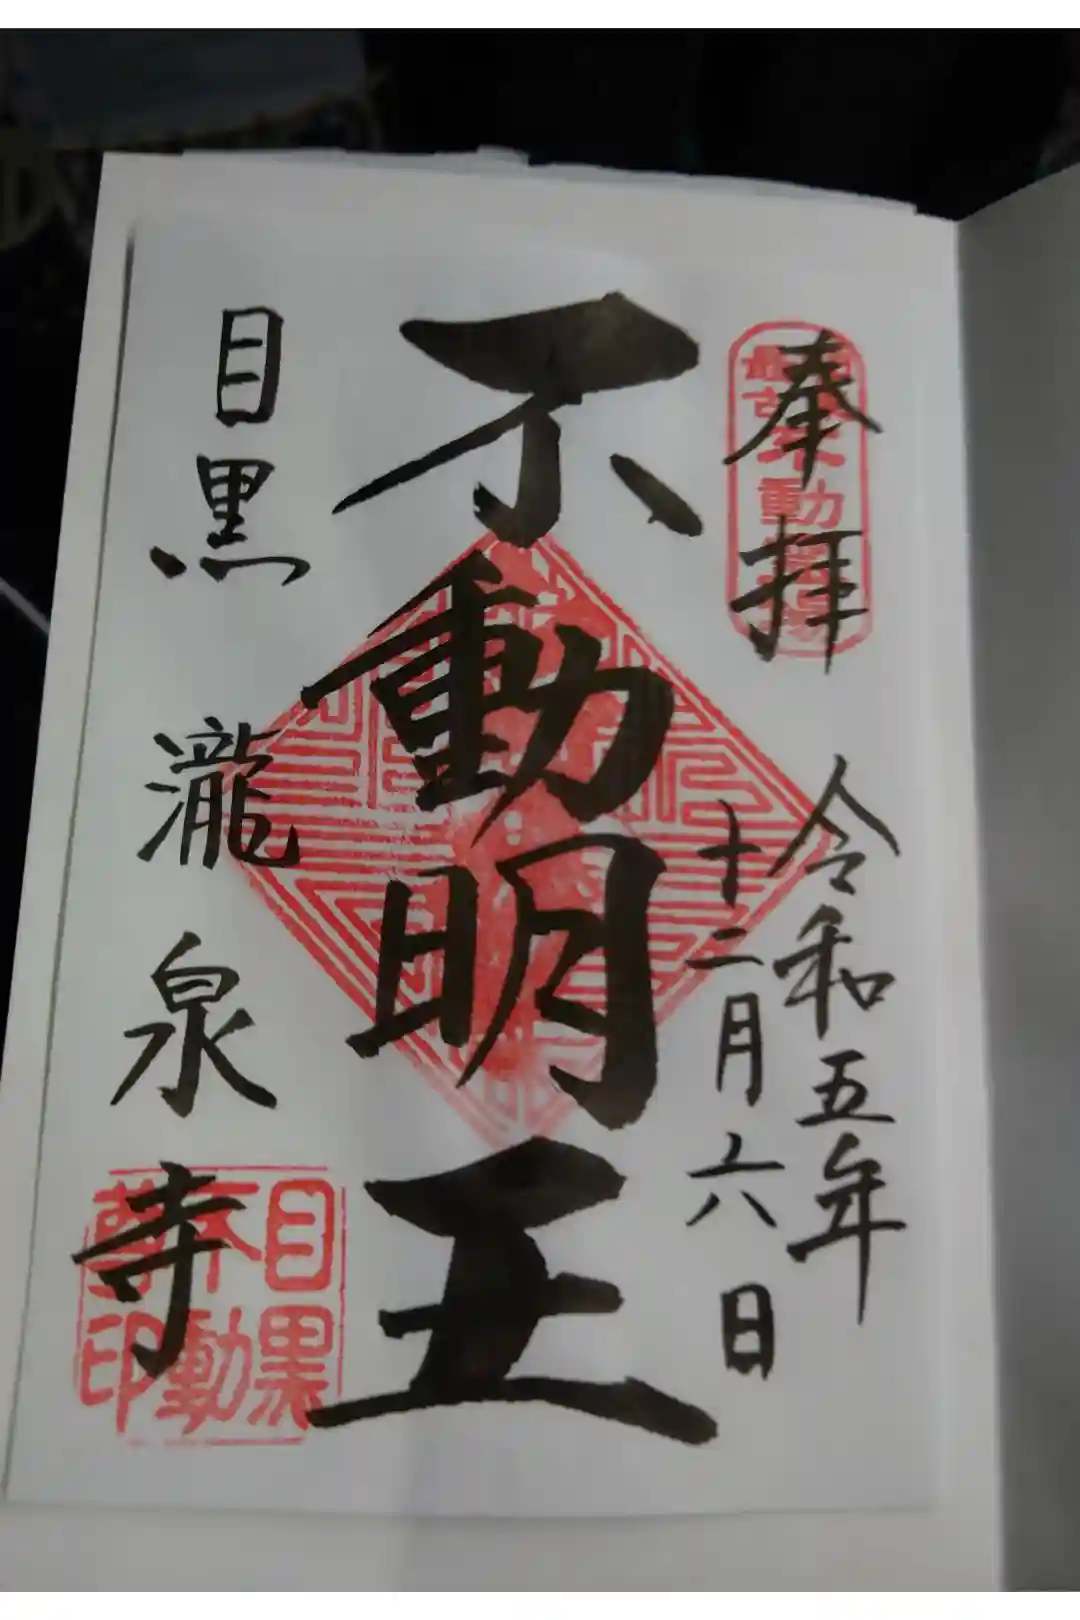 奉拝
令和五年
十二月六日
不動明王
目黒 瀧泉寺
目黒
不動
印